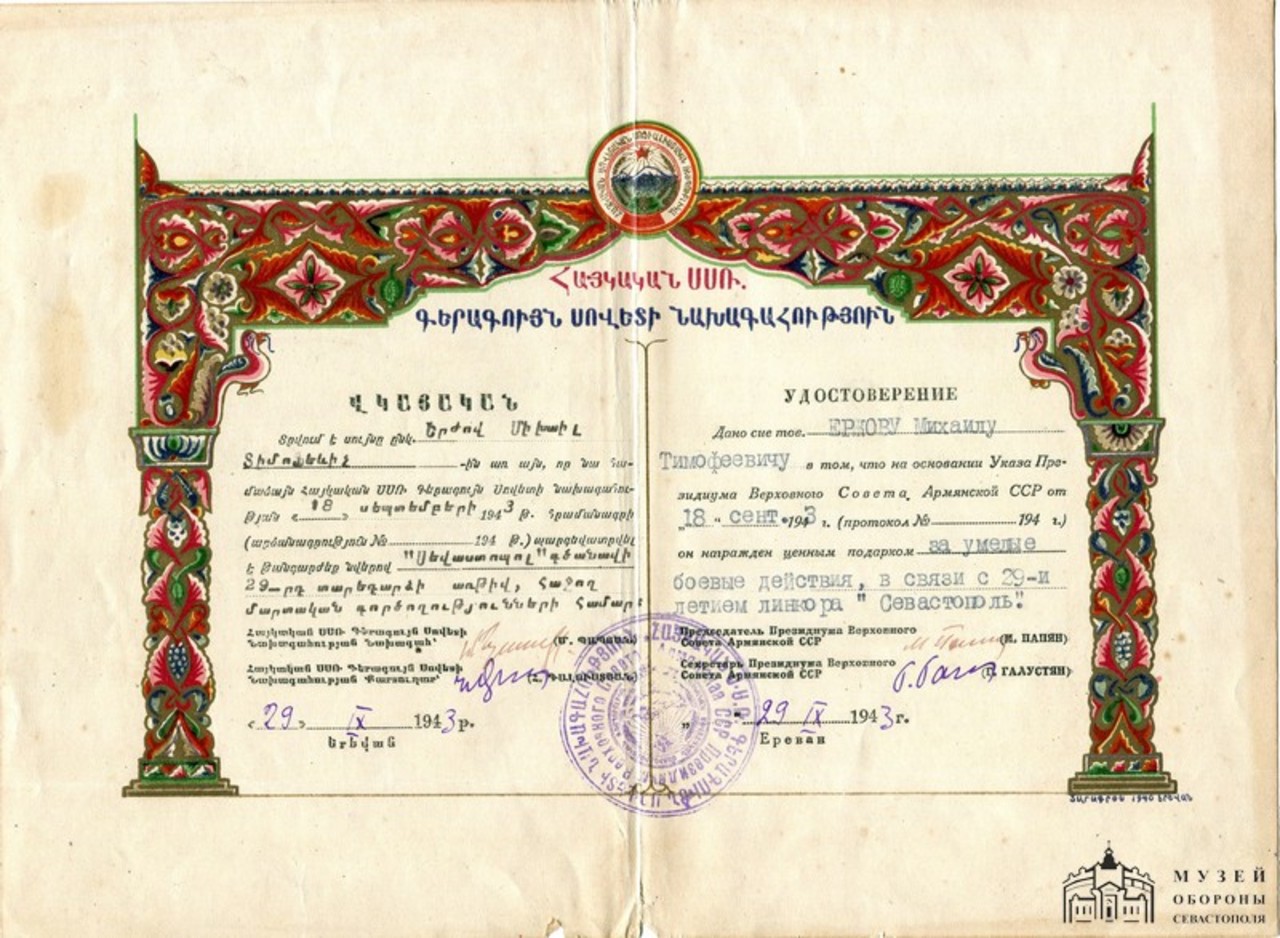 ՀԱՅԿԱԿԱՆ ՍՍՌ.
ԳԵՐԱԳՈՒՅՆ ՍՈՎԵՏԻ ՆԱԽԱԳԱՀՈՒԹՅՈՒՆ
ՎԿԱՅԱԿԱՆ
Տրվում է սույնը ընկ. Երժով Միխաիլ
Տիմոֆեևիչ -ին առ այն, որ նա հա-
մաձայն Հայկական ՍՍՌ Գերագույն Սովետի նախագահու-
թյան «18» սեպտեմբերի 1943 թ. հրամանագրի
(արձանագրություն № 194 թ.) պարգևատրվել
է թանգարժեք նվերով "Սևվաստոպոլ" գծանավի
29-րդ տարեդարձի առթիվ, հաջող
մարտական գործողությունների համար:
Հայկական ՍՍՌ Գերագույն Սովետի
Նախագահության Նախագահ՝ (Մ. ՊԱՊՅԱՆ)
Հայկական ՍՍՌ Գերագույն Սովետի
Նախագահության Քարտուղար՝
«29» IX 1943 թ.
Երևան
УДОСТОВЕРЕНИЕ
Дано сие тов. ЕРЖОВУ Михаилу
Тимофеевичу в том, что на основании Указа Пре-
зидиума Верховного Совета Армянской ССР от
"18" сент. 1943 г. (протокол № 194 г.)
он награжден ценным подарком за умелые
боевые действия, в связи с 29-и
летием линкора "Севастополь".
Председатель Президиума Верховного
Совета Армянской ССР (М. ПАПЯН)
Секретарь Президиума Верховного
Совета Армянской ССР ГАЛУСТЯН)
" " 29 IX 1943 г.
Ереван
1940 ԵՐԵՎԱՆ
МУЗЕЙ
ОБОРОНЫ
СЕВАСТОПОЛЯ